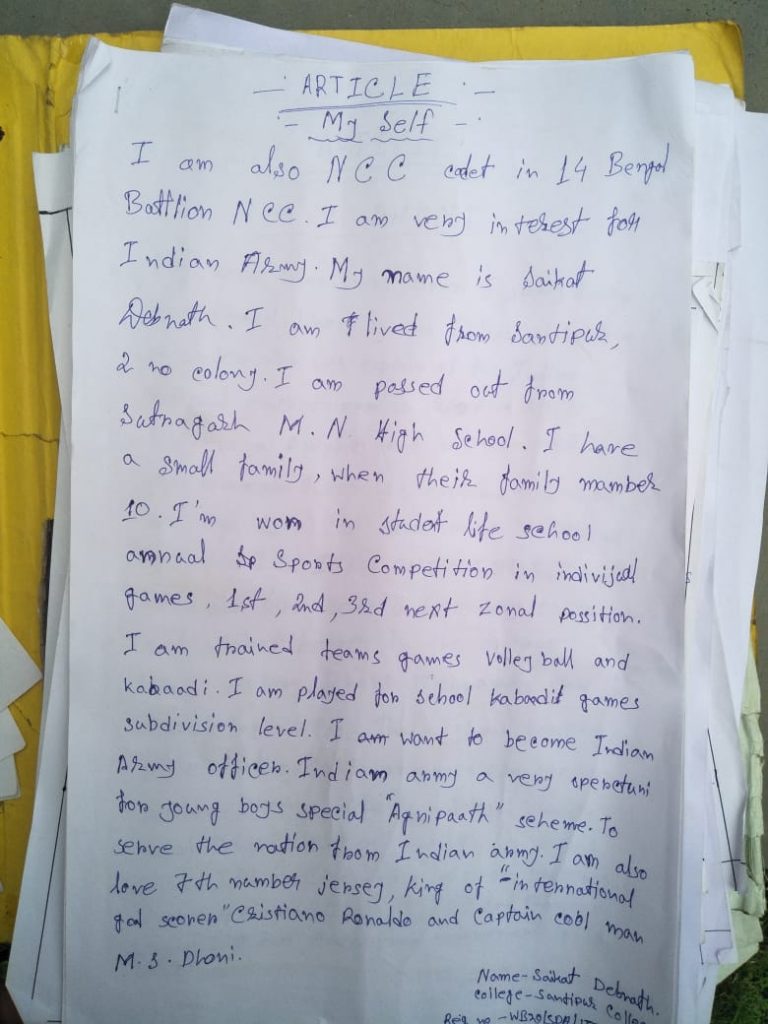 ARTICLE
My Self
I am also NCC cadet in 14 Bengal
Battlion NCC. I am very interest for
Indian Army. My name is Saikat
Debnath. I am lived from Santipur,
2 no colony. I am passed out from
Sutragarh M.N. High School. I have
a small family, when their family mamber
10. I'm won in student life school
annual Sports Competition in indivijual
games, 1st, 2nd, 3rd next zonal possition.
I am trained teams games volley ball and
kabaadi. I am played for school kabaadi games
subdivision level. I am want to become Indian
Army officer. Indian army a very openctuni
for young boys special "Agnipaath" scheme. To
serve the nation from Indian army. I am also
love 7th number jersey, king of "international
goal scorer" Cristiano Ronaldo and Captain cool man
M.S. Dhoni.
Name-Saikat Debnath.
College-Santipur Colle
Reg no -WB20/SDA/